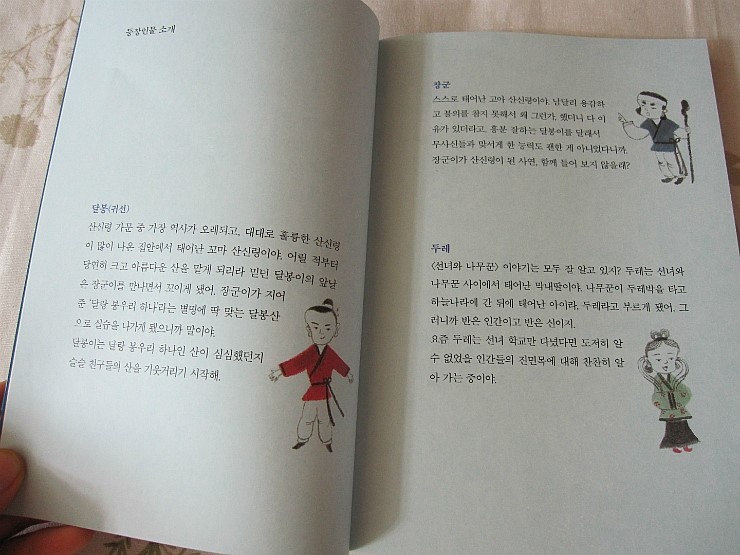 등장인물 소개
달봉(귀선)
산신령 가문 중 가장 역사가 오래되고, 대대로 훌륭한 산신령
이 많이 나온 집안에서 태어난 꼬마 산신령이야. 어릴 적부터
당연히 크고 아름다운 산을 맡게 되리라 믿던 달봉이의 앞날
은 장군이를 만나면서 꼬이게 됐어. 장군이가 지어
준 '달랑 봉우리 하나'라는 별명에 딱 맞는 달봉산
으로 실습을 나가게 됐으니까 말이야.
달봉이는 달랑 봉우리 하나인 산이 심심했던지
슬슬 친구들의 산을 기웃거리기 시작해.
장군
스스로 태어난 고아 산신령이야. 남달리 용감하
고 불의를 참지 못해서 왜 그런가, 했더니 다 이
유가 있더라고. 흥분 잘하는 달봉이를 달래서
무사신들과 맞서게 한 능력도 괜한 게 아니었다니까.
장군이가 산신령이 된 사연, 함께 들어 보지 않을래?
두레
〈선녀와 나무꾼〉 이야기는 모두 잘 알고 있지? 두레는 선녀와
나무꾼 사이에서 태어난 막내딸이야. 나무꾼이 두레박을 타고
하늘나라에 간 뒤에 태어난 아이라, 두레라고 부르게 됐어. 그
러니까 반은 인간이고 반은 신이지.
요즘 두레는 선녀 학교만 다녔다면 도저히 알
수 없었을 인간들의 진면목에 대해 찬찬히 알
아 가는 중이야.